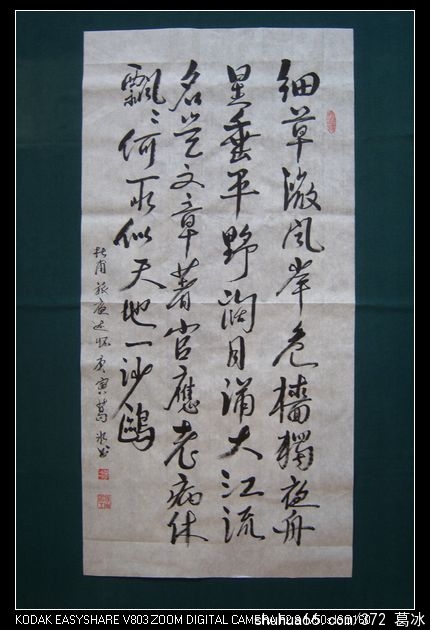 细草微风岸危檣獨夜舟
星垂平野阔月涌大江流
名岂文章著官應老病休
飘〻何所似天地一沙鷗
杜甫旅夜述怀庚寅葛冰书
KODAK EASYSHARE V803 ZOOM DIGITAL CAMERA
shuhua65.com/372 葛冰